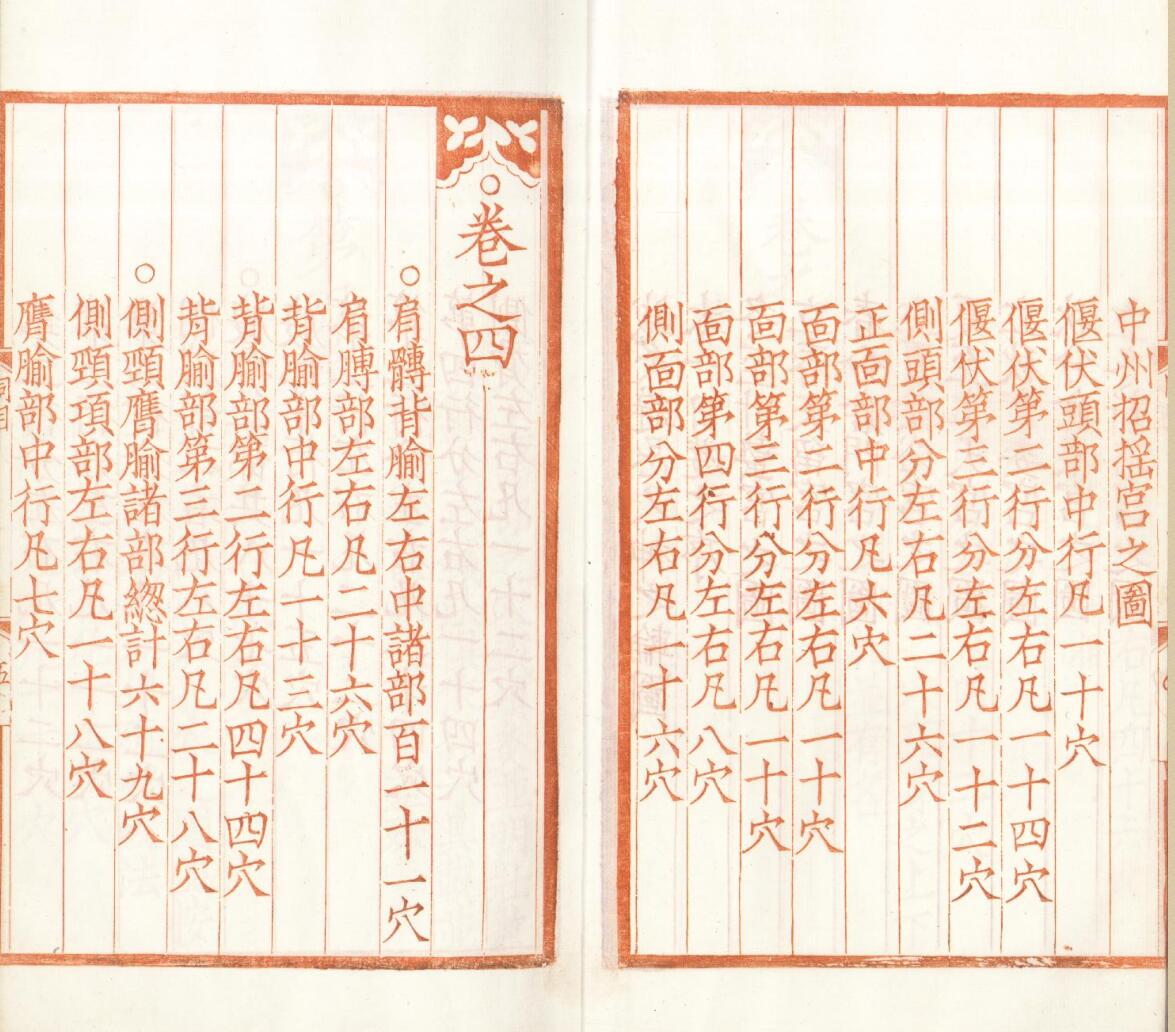 中州招摇宫之圖
偃伏頭部中行凡一十穴
偃伏第二行分左右凡一十四穴
偃伏第三行分左右凡一十二穴
側頭部分左右凡二十六穴
正面部中行凡六穴
面部第二行分左右凡一十穴
面部第三行分左右凡一十穴
面部第四行分左右凡八穴
側面部分左右凡一十六穴
○卷之四
○肩髆背腧左右中諸部百一十一穴
肩膊部左右凡二十六穴
背腧部中行凡一十三穴
背腧部第二行左右凡四十四穴
背腧部第三行左右凡二十八穴
○側頸膺腧諸部緫計六十九穴
側頸項部左右凡一十八穴
膺腧部中行凡七穴